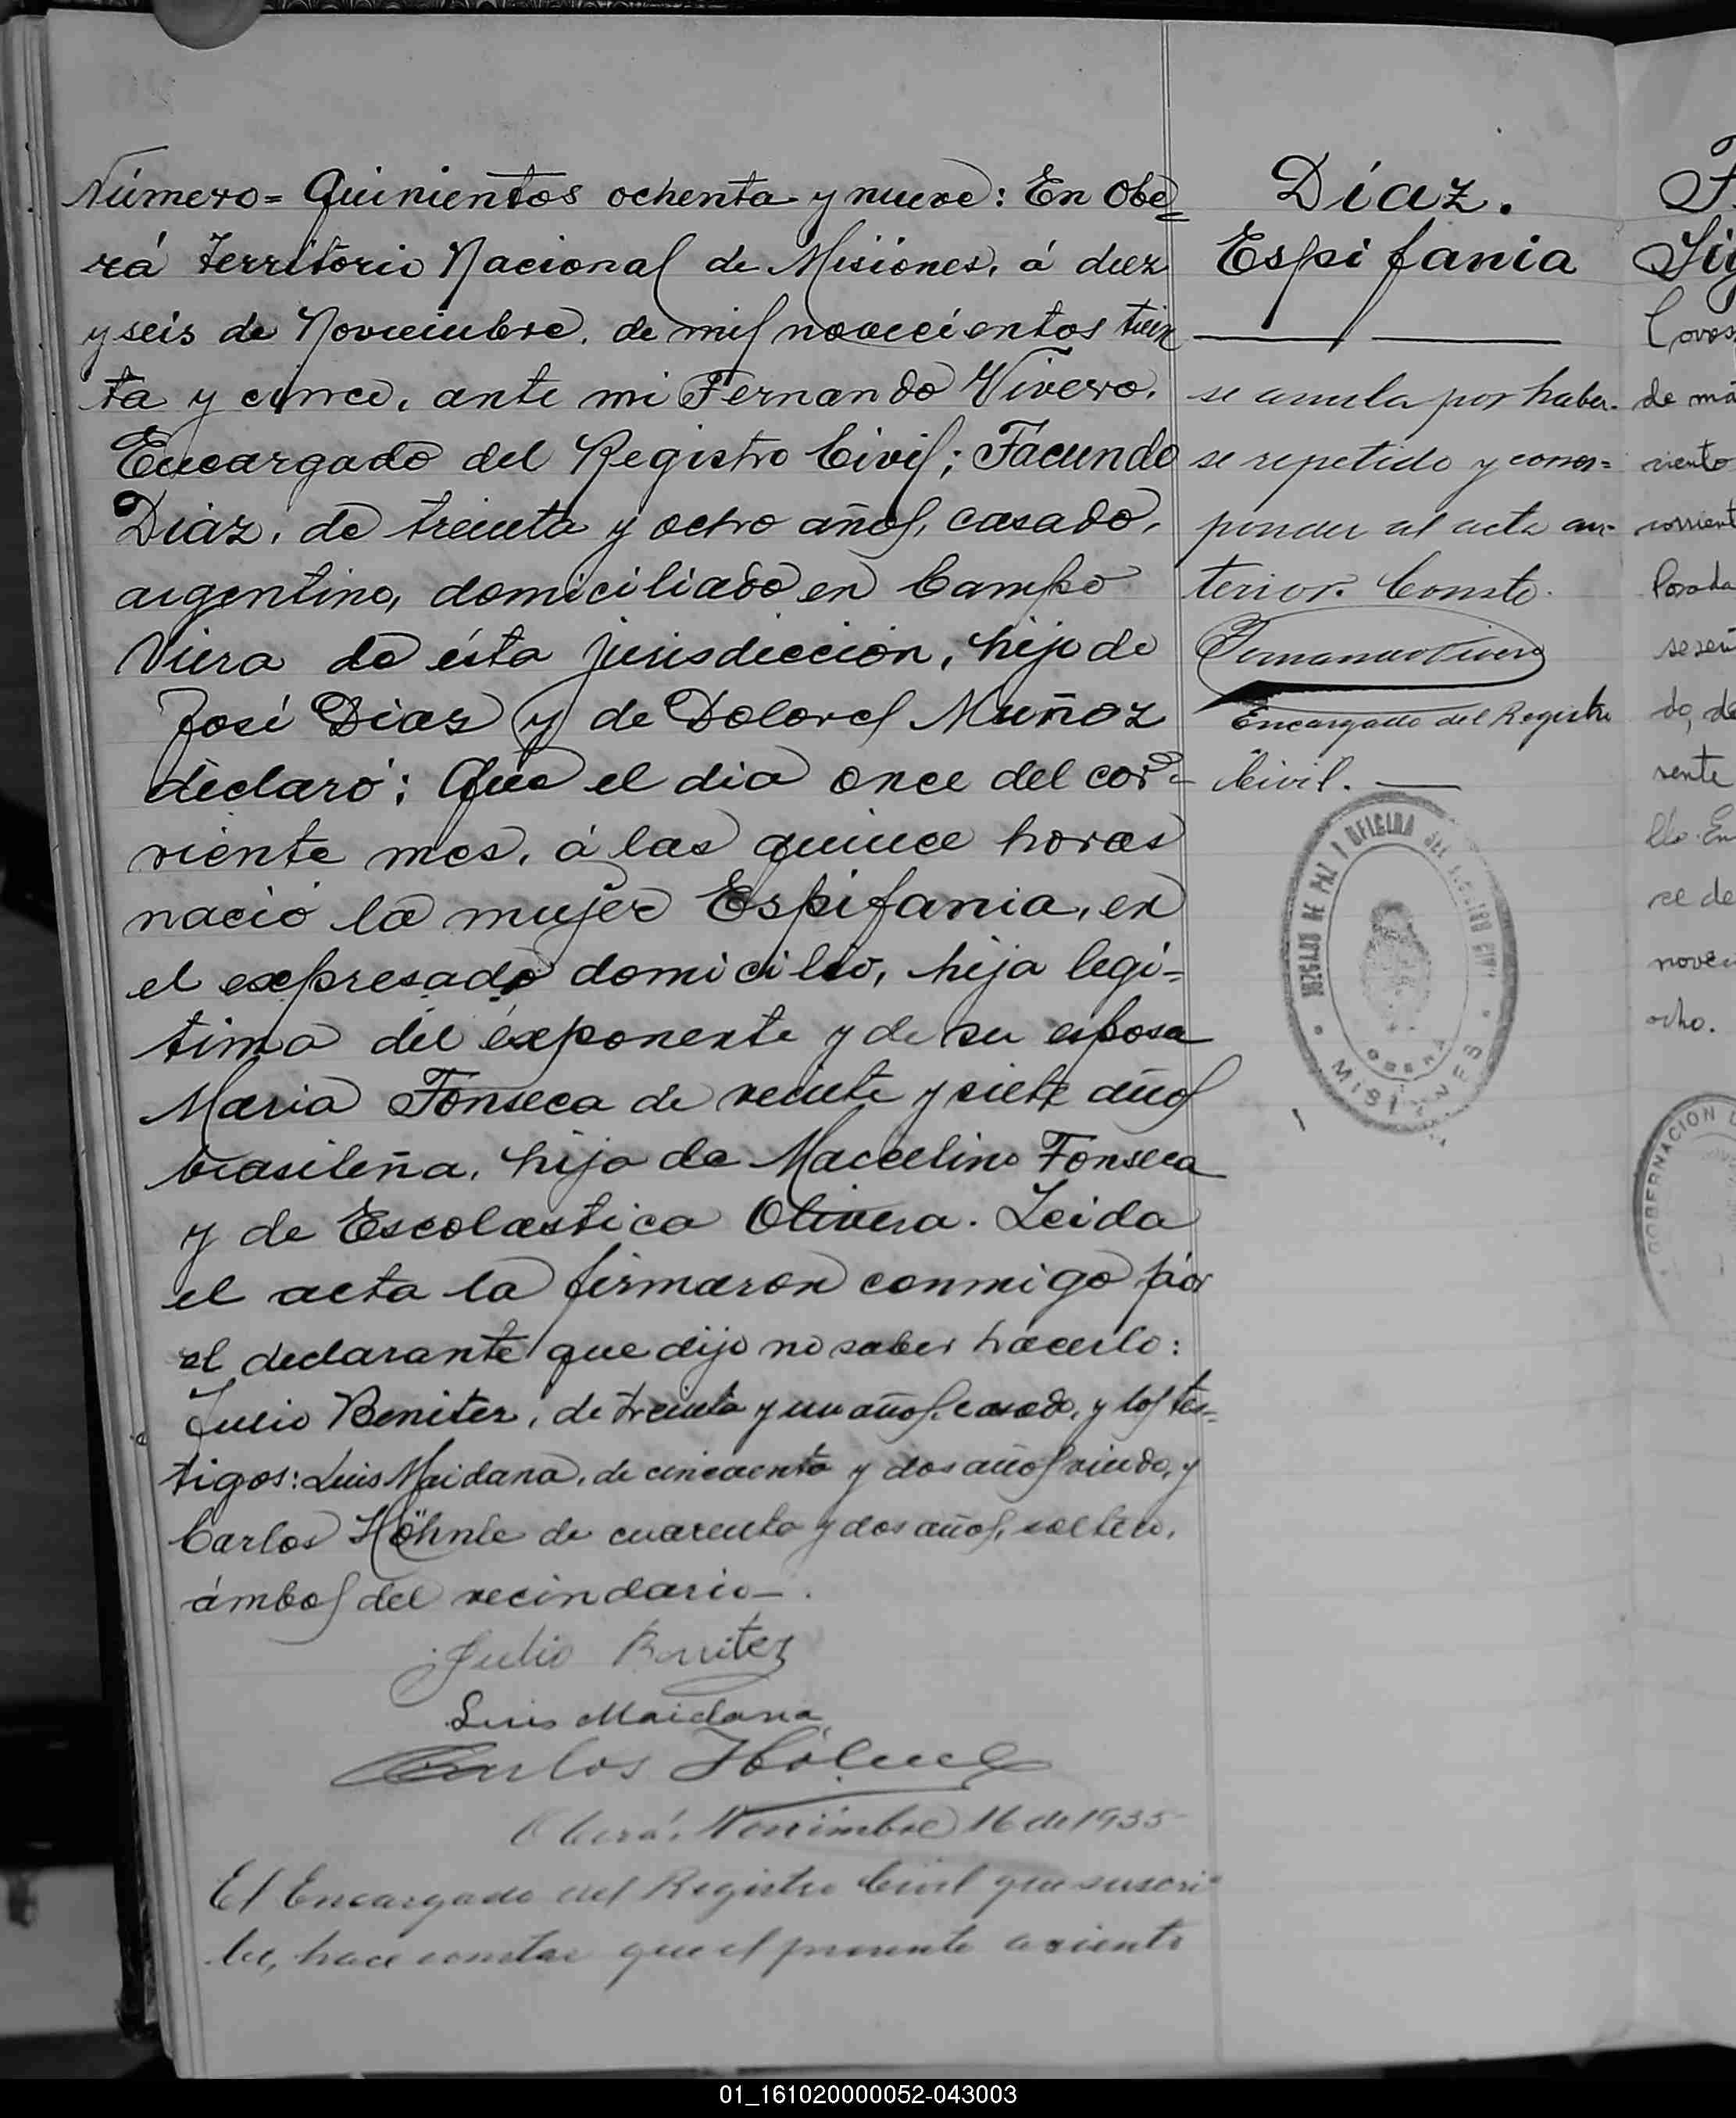 Número= Quinientos ochenta y nueve: En Obe=
rá Territorio Nacional de Misiones, á diez
y seis de Noviembre, de mil novecientos trein
ta y cinco, ante mi Fernando Vivero,
Encargado del Registro Civil; Facundo
Diaz, de treinta y ocho años, casado,
argentino, domiciliado en Campo
Viera de ésta jurisdiccion, hijo de
José Diaz y de Dolores Muñoz
declaró: Que el dia once del cor=
riente mes, á las quince horas
nació la mujer Espifania, en
el expresado domicilio, hija legi=
tima del exponente y de su esposa
Maria Fonseca de veinte y siete años
brasileña, hija de Marcelino Fonseca
y de Escolastica Olivera. Leida
el acta la firmaron conmigo por
el declarante que dijo no saber hacerlo:
Julio Benitez, de treinta y un años, casado, y los tes=
tigos: Luis Maidana, de cincuenta y dos años viudo, y
Carlos Höhnle de cuarenta y dos años, soltero,
ámbos del vecindario.
Julio Benitez
Luis Maidana
Carlos
Oberá, Noviembre 16 de 1935
El Encargado del Registro Civil que suscri=
be, hace constar que el presente asiento
Díaz.
Espifania
se anula por haber-
se repetido y corres=
ponder al acta an-
terior. Conste.
Fernando Vivero
Encargado del Registro
Civil.
JUZGADO DE PAZ Y OFICINA DEL REGISTRO CIVIL
OBERA
MISIONES
de ma
viento
corrient
Posada
do, de
sente
llo. En
ce de
novec
ocho.
GOBERNACION
01_161020000052-043003